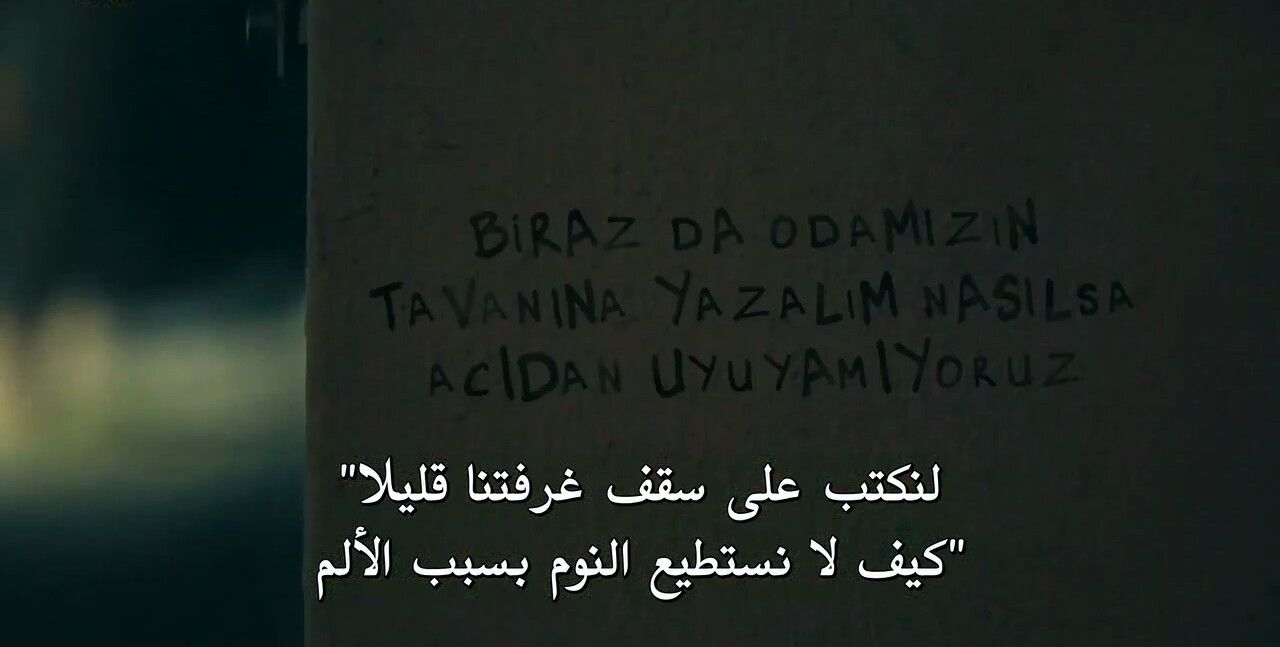 BİRAZ DA ODAMIZIN
TAVANINA YAZALIM NASILSA
ACIDAN UYUYAMIYORUZ
"لنكتب على سقف غرفتنا قليلا
كيف لا نستطيع النوم بسبب الألم"